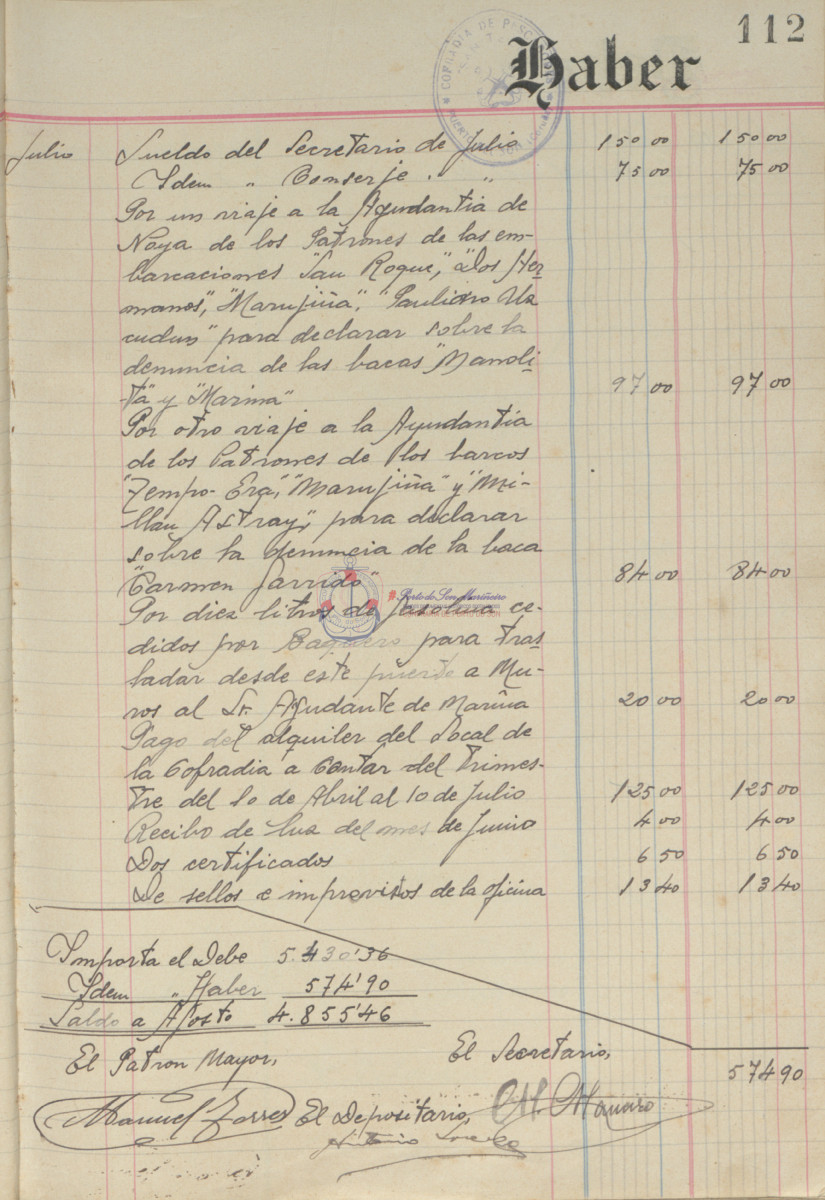 112
Haber
Julio Sueldo del Secretario de Julio 150 00 150 00
Idem " Conserje " " 75 00 75 00
Por un viaje a la Ayudantia de
Noya de los Patrones de las em-
barcaciones "San Roque", "Dos Her
manos", "Marujiña", "Paulino Uz
cudun" para declarar sobre la
denuncia de las bacas "Manoli-
ta" y "Marina" 97 00 97 00
Por otro viaje a la Ayudantia
de los Patrones de los barcos
"Tempo-Era", "Marujiña" y "Mi-
llan Astray", para declarar
sobre la denuncia de la baca
"Carmen Garrido" 84 00 84 00
Por diez litros de gasolina ce-
didos por Baquero para tras
ladar desde este puerto a Mu-
ros al Sr. Ayudante de Marina 20 00 20 00
Pago del alquiler del Local de
la Cofradia a Contar del Trimes-
tre del 10 de Abril al 10 de Julio 125 00 125 00
Recibo de luz del mes de Junio 4 00 4 00
Dos certificados 6 50 6 50
De sellos e imprevistos de la oficina 13 40 13 40
Importa el Debe 5.430'36
Idem " Haber 574'90
Saldo a Agosto 4.855'46
El Patron Mayor, El Secretario,
574 90
Manuel Torres El Depositario,
Porto do Son Mariñeiro
COFRADIA DE PESCADORES